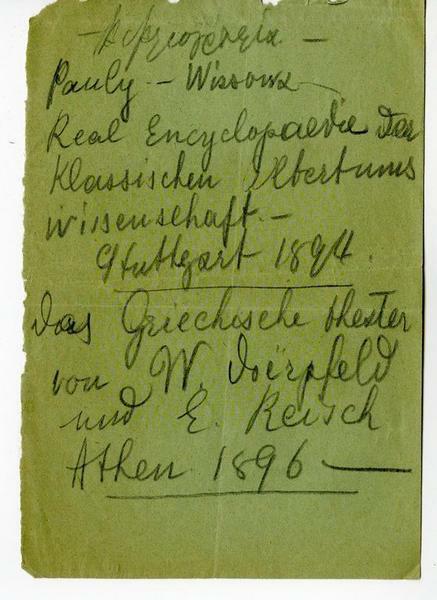 Pauly - Wissowa
Real Encyclopaedie der
Klassischen Altertums
Wissenschaft. -
Stuttgart 1894.
das Griechische theater
von W. Doërpfeld
und E. Reisch
Athen 1896 -